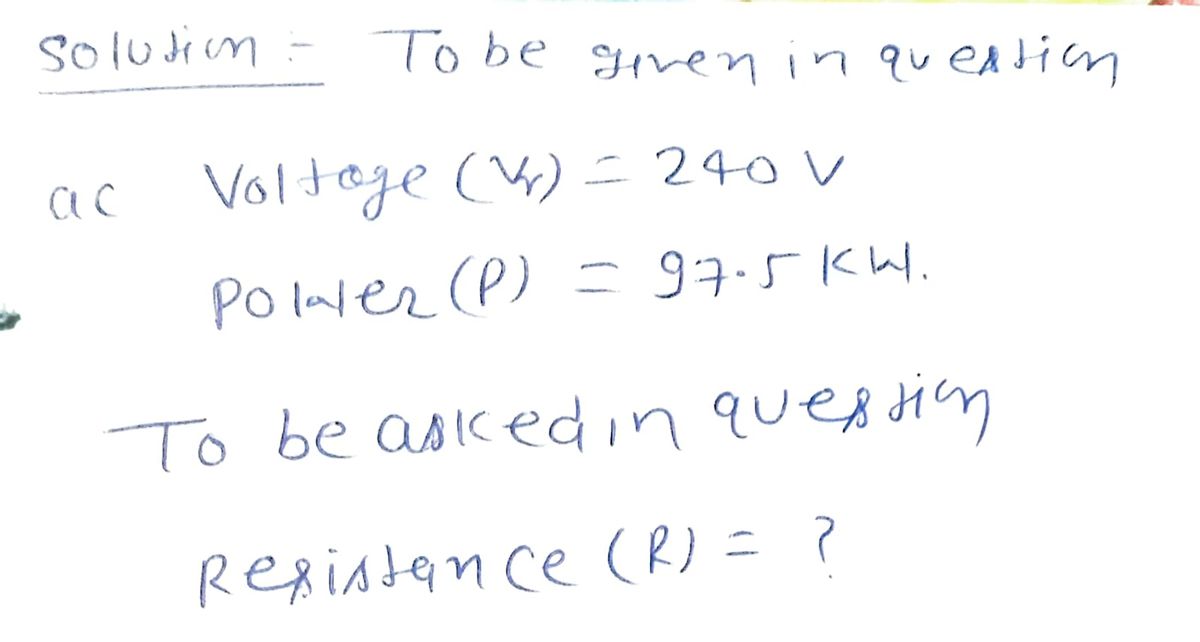 Solution :- To be given in question
ac Voltage (Vr) = 240 V
Power (P) = 97.5 KW.
To be asked in question
Resistance (R) = ?